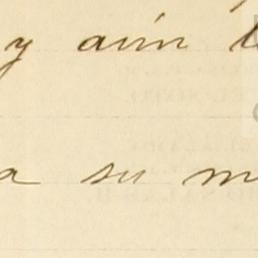 y aún
a su m